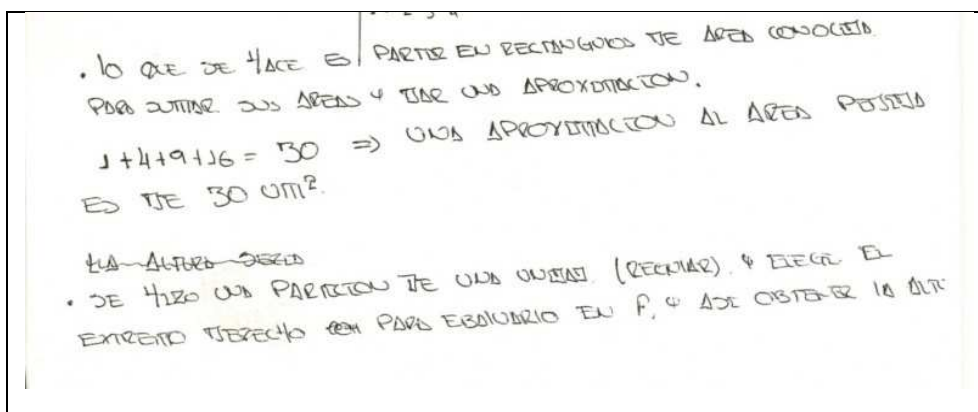 • lo QUE SE HACE ES PARTIR EN RECTANGULOS DE AREA CONOCIDA
PARA SUMAR SUS AREAS Y DAR UNA APROXIMACION.
1+4+9+16 = 30 => UNA APROXIMACION AL AREA PEDIDA
ES DE 30 um².
LA ALTURA SERIA
• SE HIZO UNA PARTICION DE UNA UNIDAD. (REGULAR). Y ELEGI EL
EXTREMO DERECHO PARA EBALUARLO EN f, Y ASI OBTENER LA ALT